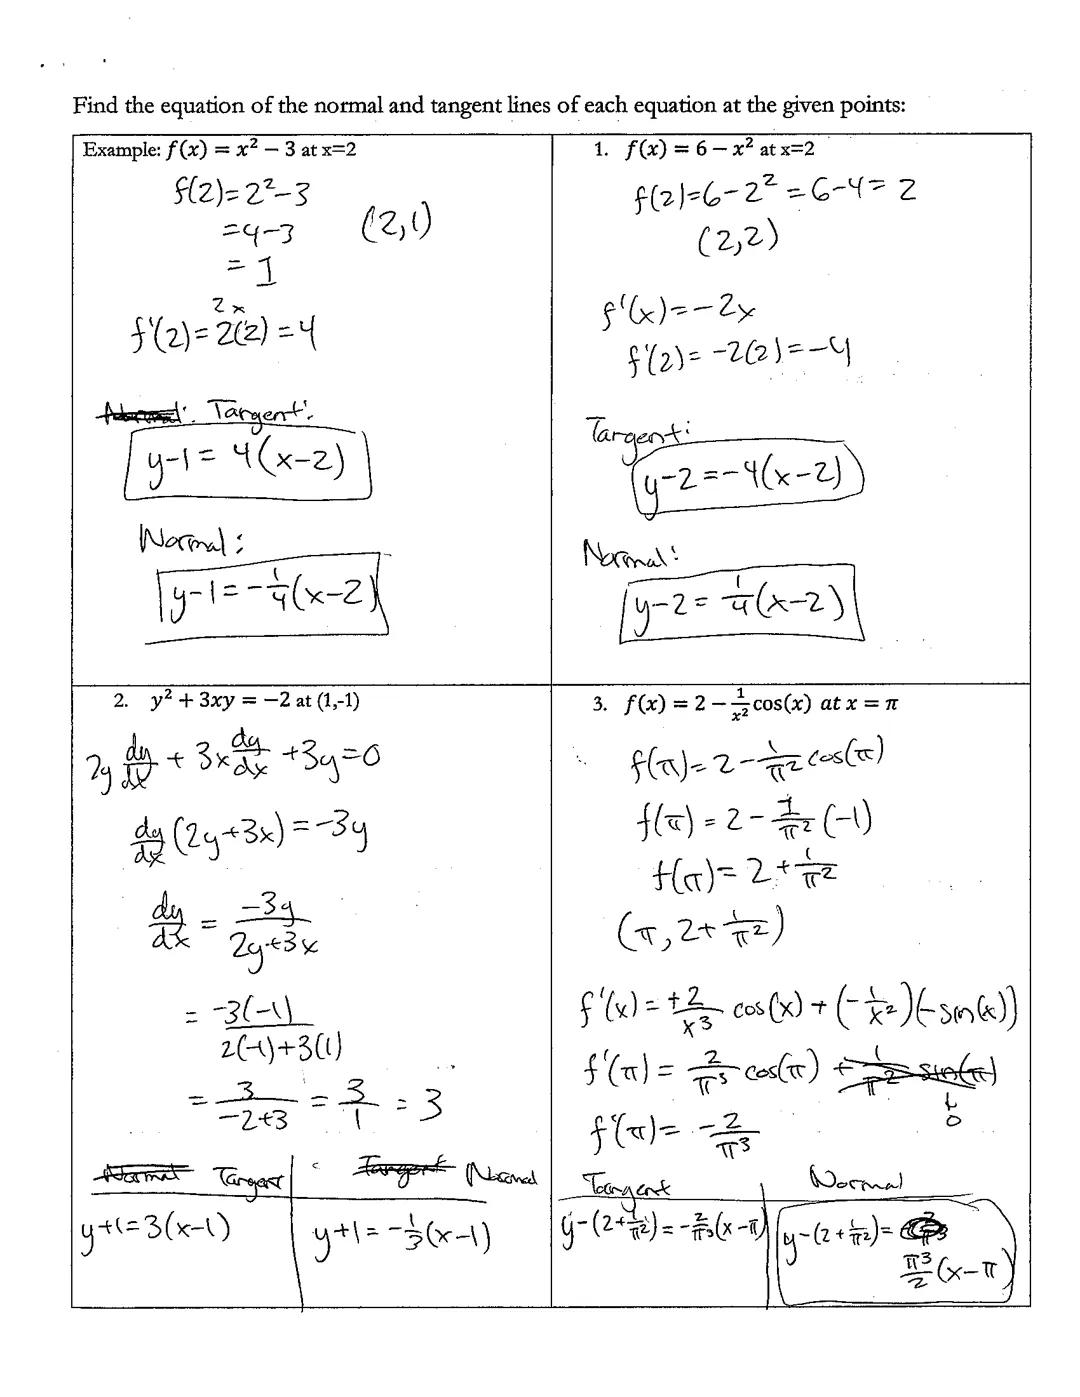 Find the equation of the normal and tangent lines of each equation at the given points:
Example: f(x) = x² − 3 at x=2
f(2)=2²−3
=4−3
(2,1)
= 1
2x
f'(2)=2(2)=4
Tangent:
y−1= 4(x−2)
Normal:
y−1=−1/4(x−2)
1. f(x) = 6 − x² at x=2
f(2)=6−2²=6−4=2
(2,2)
f'(x)=−2x
f'(2)=−2(2)=−4
Tangent:
y−2=−4(x−2)
Normal:
y−2=1/4(x−2)
2. y² + 3xy = −2 at (1,-1)
2y dy/dx + 3x dy/dx +3y=0
dy/dx (2y+3x)=−3y
dy/dx = −3y/(2y+3x)
= −3(−1)/(2(−1)+3(1))
= 3/(−2+3) = 3/1 = 3
Normal Tangent
Tangent Normal
y+1=3(x−1)
y+1=−1/3(x−1)
3. f(x) = 2 − 1/x² cos(x) at x = π
f(π)=2−1/π² cos(π)
f(π)=2−1/π² (−1)
f(π)=2+1/π²
(π,2+1/π²)
f'(x)=+2/x³ cos(x)+(−1/x²)(−sin(x))
f'(π)=2/π³ cos(π)+1/π² sin(π)
0
f'(π)=−2/π³
Tangent
Normal
y−(2+1/π²)=−2/π³(x−π)
y−(2+1/π²)=
π³/2(x−π)